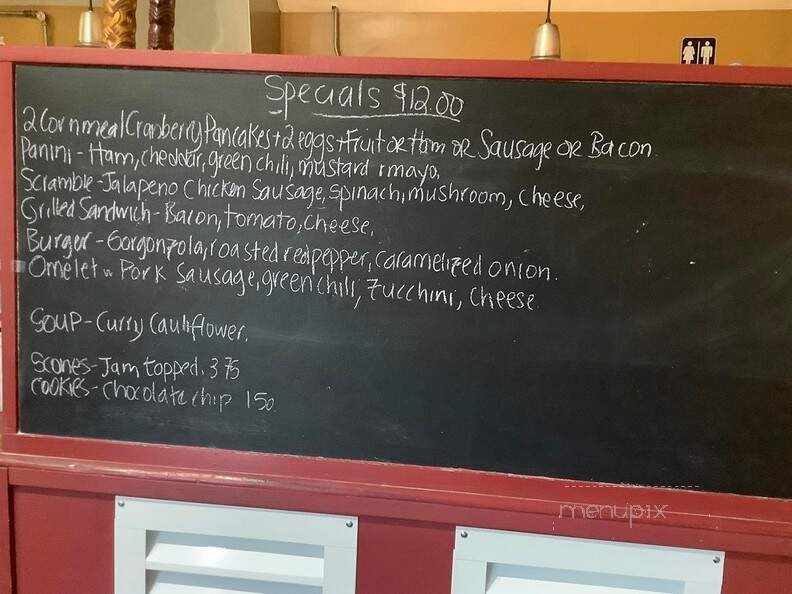 Specials $12.00
2 Cornmeal Cranberry Pancakes + 2 eggs + Fruit or Ham or Sausage or Bacon
Panini - Ham, cheddar, green chili, mustard + mayo.
Scramble - Jalapeno Chicken Sausage, spinach, mushroom, cheese,
Grilled Sandwich - Bacon, tomato, cheese.
Burger - Gorgonzola, roasted red pepper, caramelized onion.
Omelet - Pork Sausage, green chili, zucchini, cheese
Soup - Curry Cauliflower.
Scones - Jam topped. 375
Cookies - chocolate chip 150
menupix